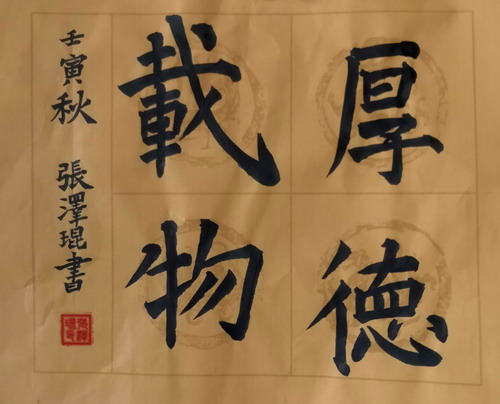 厚德
載物
壬寅秋 張澤琨書